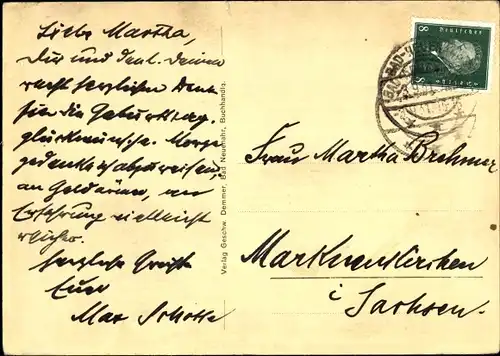 Liebe Martha,
Dir und Paul meinen
recht herzlichen Dank
für die Geburtstags-
glückwünsche. Morgen
gedenke ich abzureisen,
an Geld ärmer, an
Erfahrung vielleicht
reicher.
Herzliche Grüße
Euer
Max Schotte
Verlag Geschw. Demmer, Bad Neuenahr, Buchhandlg.
8 Deutsches 8
Reich
BAD
Frau Martha Brehmer
Markneukirchen
i Sachsen.